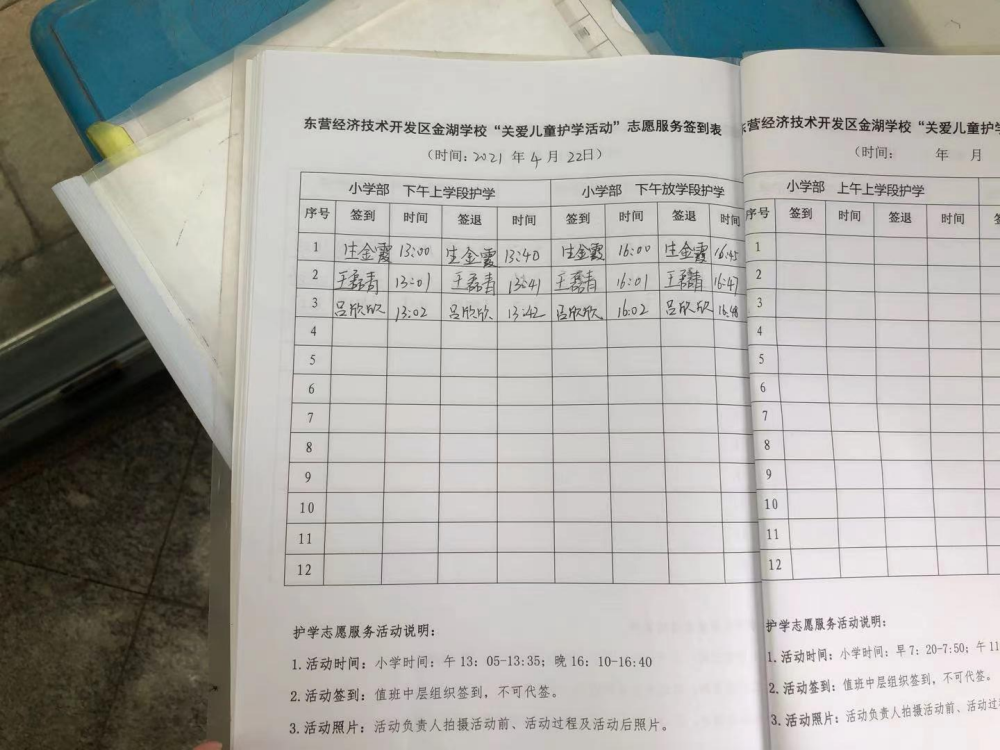 东营经济技术开发区金湖学校“关爱儿童护学活动”志愿服务签到表
（时间：2021 年 4 月 22日）
小学部 下午上学段护学 小学部 下午放学段护学
序号 签到 时间 签退 时间 签到 时间 签退 时间
1 生金霞 13:00 生金霞 13:40 生金霞 16:00 生金霞 16:45
2 王磊青 13:01 王磊青 13:41 王磊青 16:01 王磊青 16:47
3 吕欣欣 13:02 吕欣欣 13:42 吕欣欣 16:02 吕欣欣 16:48
4
5
6
7
8
9
10
11
12
护学志愿服务活动说明：
1.活动时间：小学时间：午13：05-13:35；晚16：10-16:40
2.活动签到：值班中层组织签到，不可代签。
3.活动照片：活动负责人拍摄活动前、活动过程及活动后照片。
东营经济技术开发区金湖学校“关爱儿童护学
（时间： 年 月
小学部 上午上学段护学
序号 签到 时间 签退 时间
1
2
3
4
5
6
7
8
9
10
11
12
护学志愿服务活动说明：
1.活动时间：小学时间：早7：20-7:50；午11
2.活动签到：值班中层组织签到，不可代签。
3.活动照片：活动负责人拍摄活动前、活动过